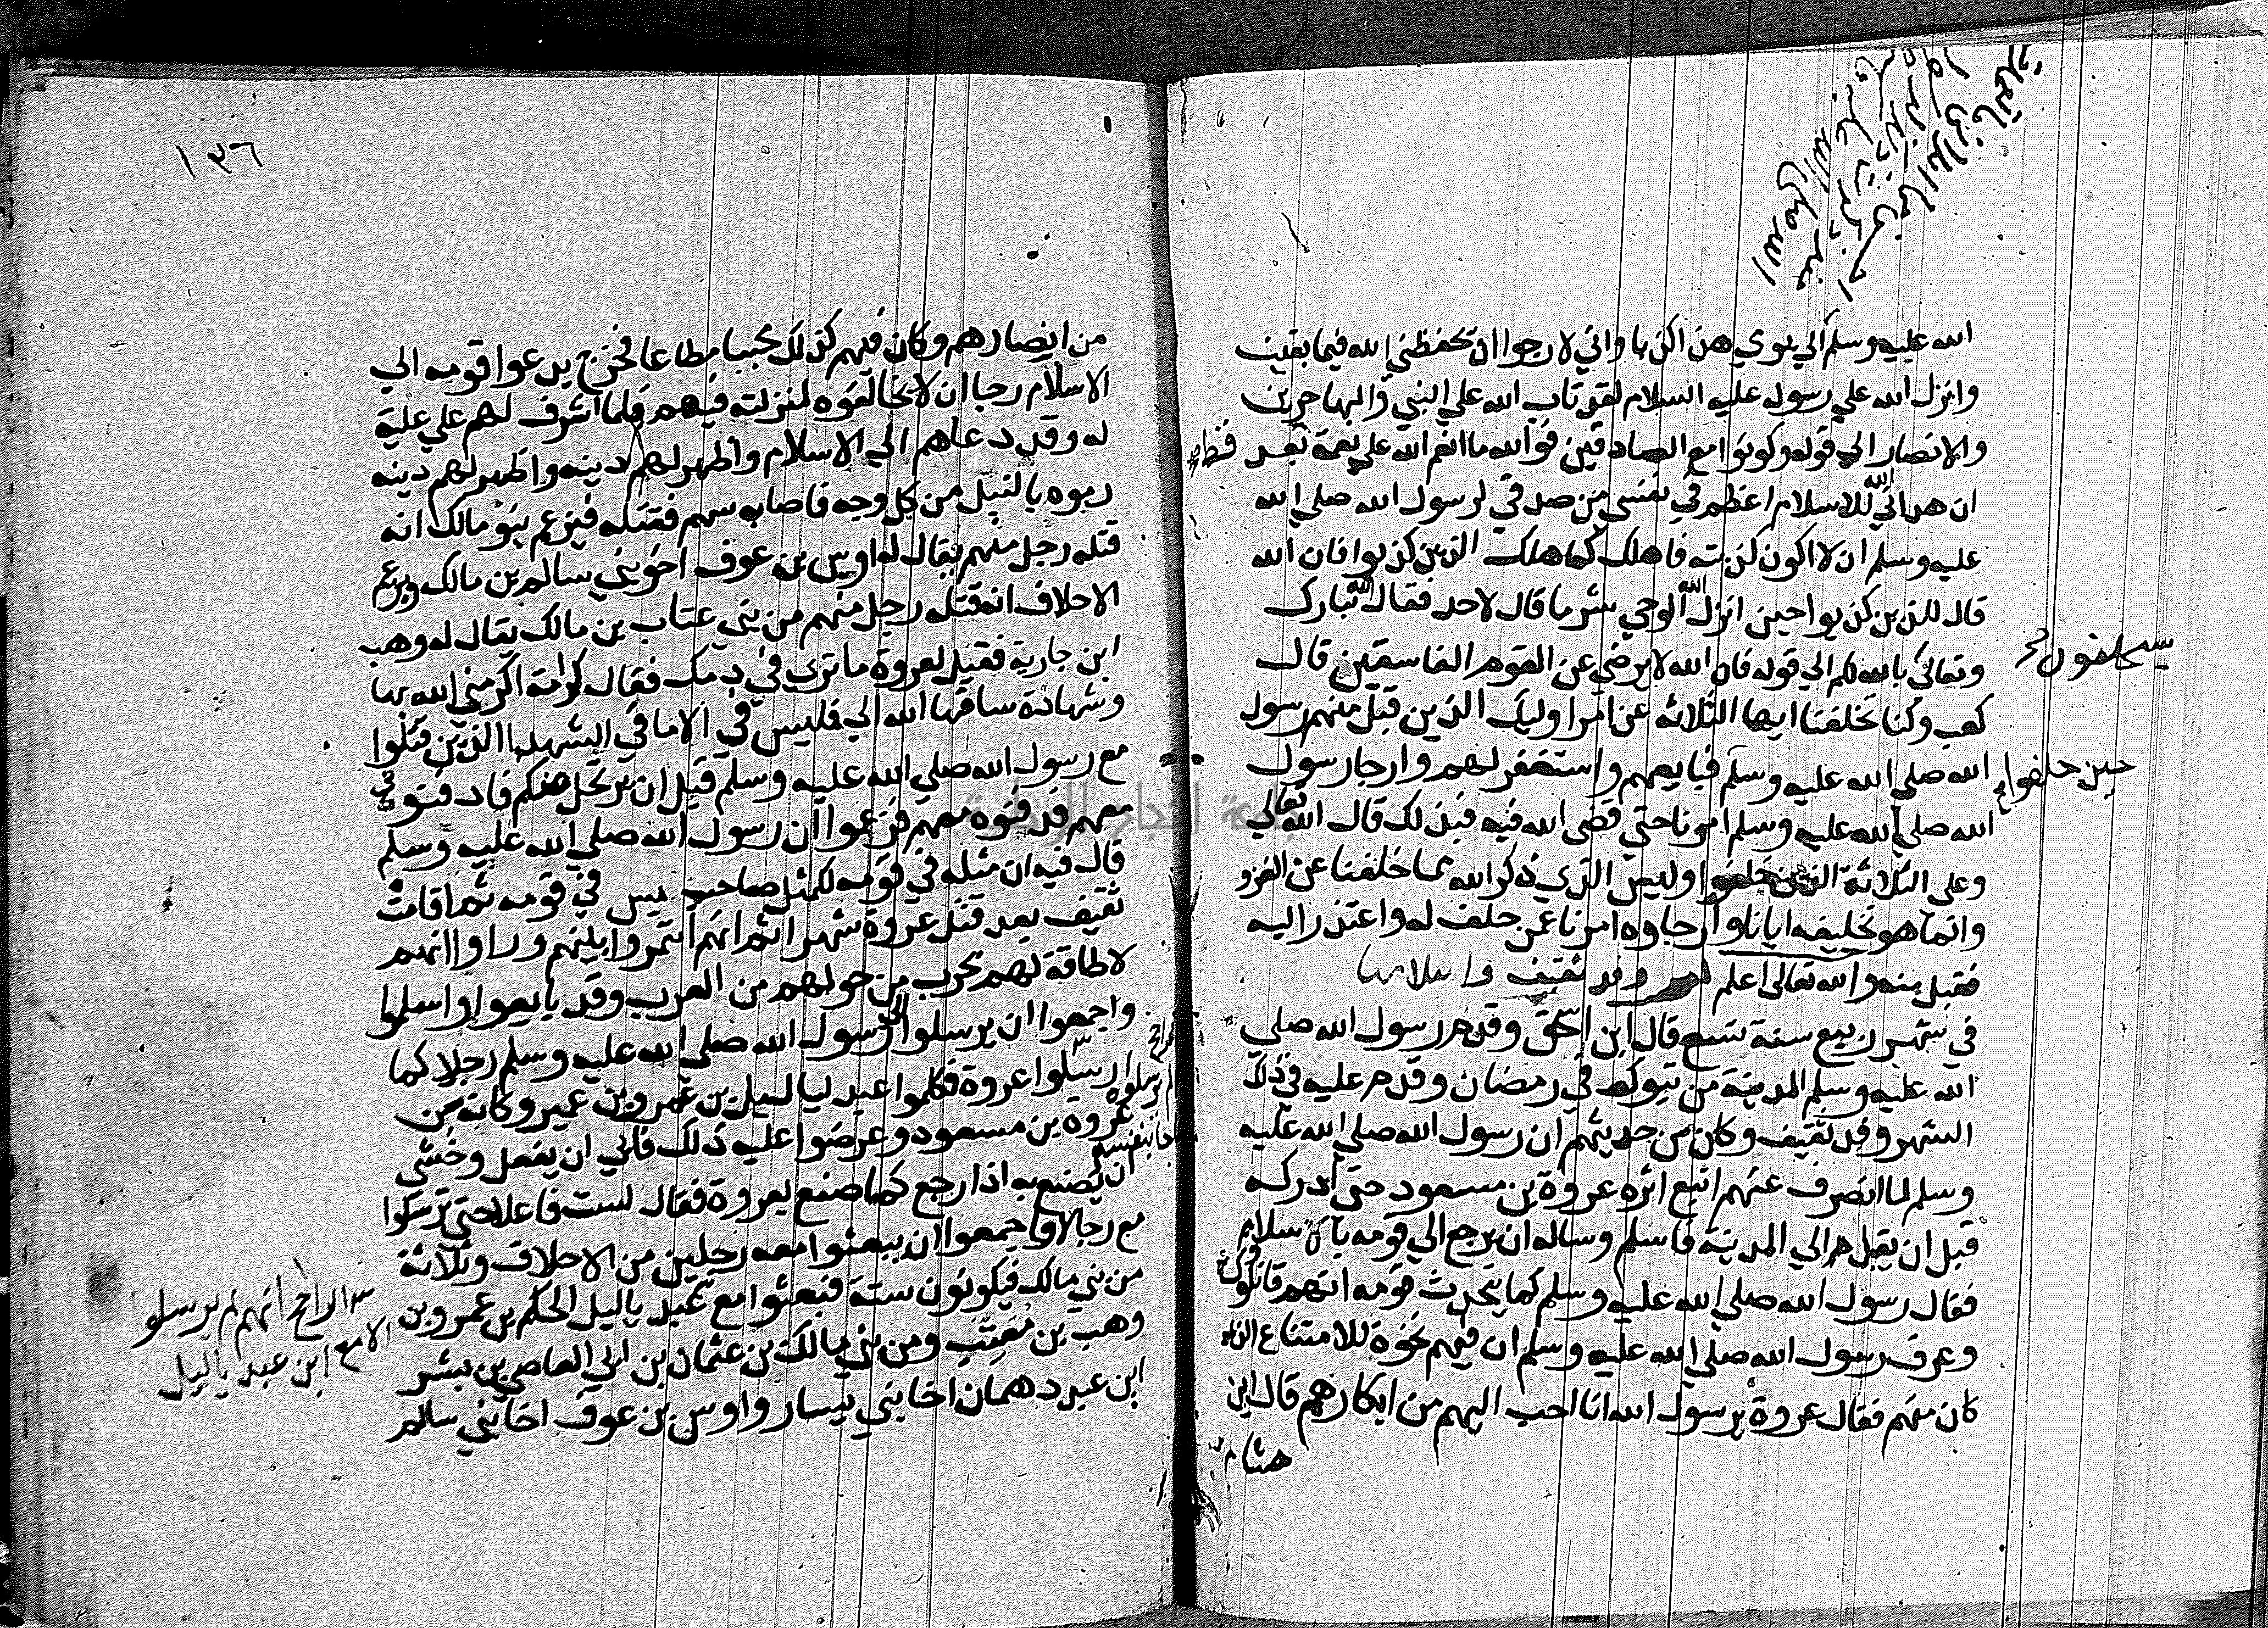 الله عليه وسلم الي يومي هذا كذبا واني لارجوا ان يحفظني الله فيما بقيت
وانزل الله علي رسوله عليه السلام لقد تاب الله علي النبي والمهاجرين
والانصار الي قوله وكونوا مع الصادقين فوالله ما انعم الله علي نعمة بعد قط
ان هداني الله للاسلام اعظم في نفسي من صدقي لرسول الله صلي الله
عليه وسلم ان لا اكون كذبته فاهلك كما هلك الذين كذبوا فان الله
قال للذين كذبوا حين انزل الله الوحي شر ما قال لاحد فقال الله تبارك
وتعالي بالله لكم الي قوله فان الله لا يرضي عن القوم الفاسقين قال
سيحلفون
كعب وكنا تخلفنا ايها الثلاثه عن امر اوليك الذين قبل منهم رسول
الله صلي الله عليه وسلم فبايعهم واستغفر لهم وارجا رسول
حين حلفوا
الله صلي الله عليه وسلم امرنا حتي قضي الله فيه فبذلك قال الله تعالي
وعلي الثلاثة الذين خلفوا وليس الذي ذكر الله مما خلفنا عن الغزو
وانما هو تخليفه ايانا وارجاوه امرنا عمن حلف له واعتذر اليه
فقبل منه والله تعالى اعلم وفد ثقيف واسلامها
في شهر ربيع سنة تسع قال ابن اسحق وقدم رسول الله صلي
الله عليه وسلم المدينة من تبوك في رمضان وقدم عليه في ذلك
الشهر وفد ثقيف وكان من حديثهم ان رسول الله صلي الله عليه
وسلم لما انصرف عنهم اتبع اثره عروة بن مسعود حتي ادركه
قبل ان يقبل الي المدينة فاسلم وساله ان يرجع الي قومه بالاسلام
فقال رسول الله صلي الله عليه وسلم كما يتحدث قومه انهم قاتلوك
وعرف رسول الله صلي الله عليه وسلم ان فيهم نخوة للامتناع الذي
كان منهم فقال عروة يرسول الله انا احب اليهم من ابكارهم قال ابن
هشام
١٣٦
من ابصارهم وكان فيهم كذلك محببا مطاعا فخرج يدعوا قومه الي
الاسلام رجا ان لا يخالفوه لمنزلته فيهم فلما اشرف لهم علي علية
له وقد دعاهم الي الاسلام واظهر لهم دينه واظهر لهم دينه
رموه بالنبل من كل وجه فاصابه سهم فقتله فيزعم بنو مالك انه
قتله رجل منهم يقال له اوس بن عوف اخو بني سالم بن مالك ويزعم
الاحلاف انه قتله رجل منهم من بني عتاب بن مالك يقال له وهب
ابن جارية فقيل لعروة ما تري في دمك فقال كرامة اكرمني الله بها
وشهادة ساقها الله الي فليس في الا ما في الشهدا الذين قتلوا
مع رسول الله صلي الله عليه وسلم قبل ان يرتحل عنكم فادفنوني
معهم فدفنوه معهم فزعموا ان رسول الله صلي الله عليه وسلم
قال فيه ان مثله في قومه لكمثل صاحب يس في قومه ثم اقامت
ثقيف بعد قتل عروة شهرا ثم انهم ائتمروا بينهم وراوا انهم
لا طاقة لهم بحرب من حولهم من العرب وقد بايعوا واسلموا
واجمعوا ان يرسلوا الي رسول الله صلي الله عليه وسلم رجلا كما
ارسلوا عروة فكلموا عبد ياليل بن عمرو بن عمير وكان من
عروه بن مسعود وعرضوا عليه ذلك فابي ان يفعل وخشي
ان يصنع به اذا رجع كما صنع بعروة فقال لست فاعلا حتي ترسلوا
مع رجالا فاجمعوا ان يبعثوا معه رجلين من الاحلاف وثلاثة
من بني مالك فيكونون ستة فبعثوا مع عبد ياليل الحكم بن عمرو بن
وهب بن معتب ومن بني مالك بن عثمان بن ابي العاصي بن بشر
ابن عبد دهمان اخا بني يسار واوس بن عوف اخا بني سالم
الراجح انهم لم يرسلوا
الا مع ابن عبد ياليل